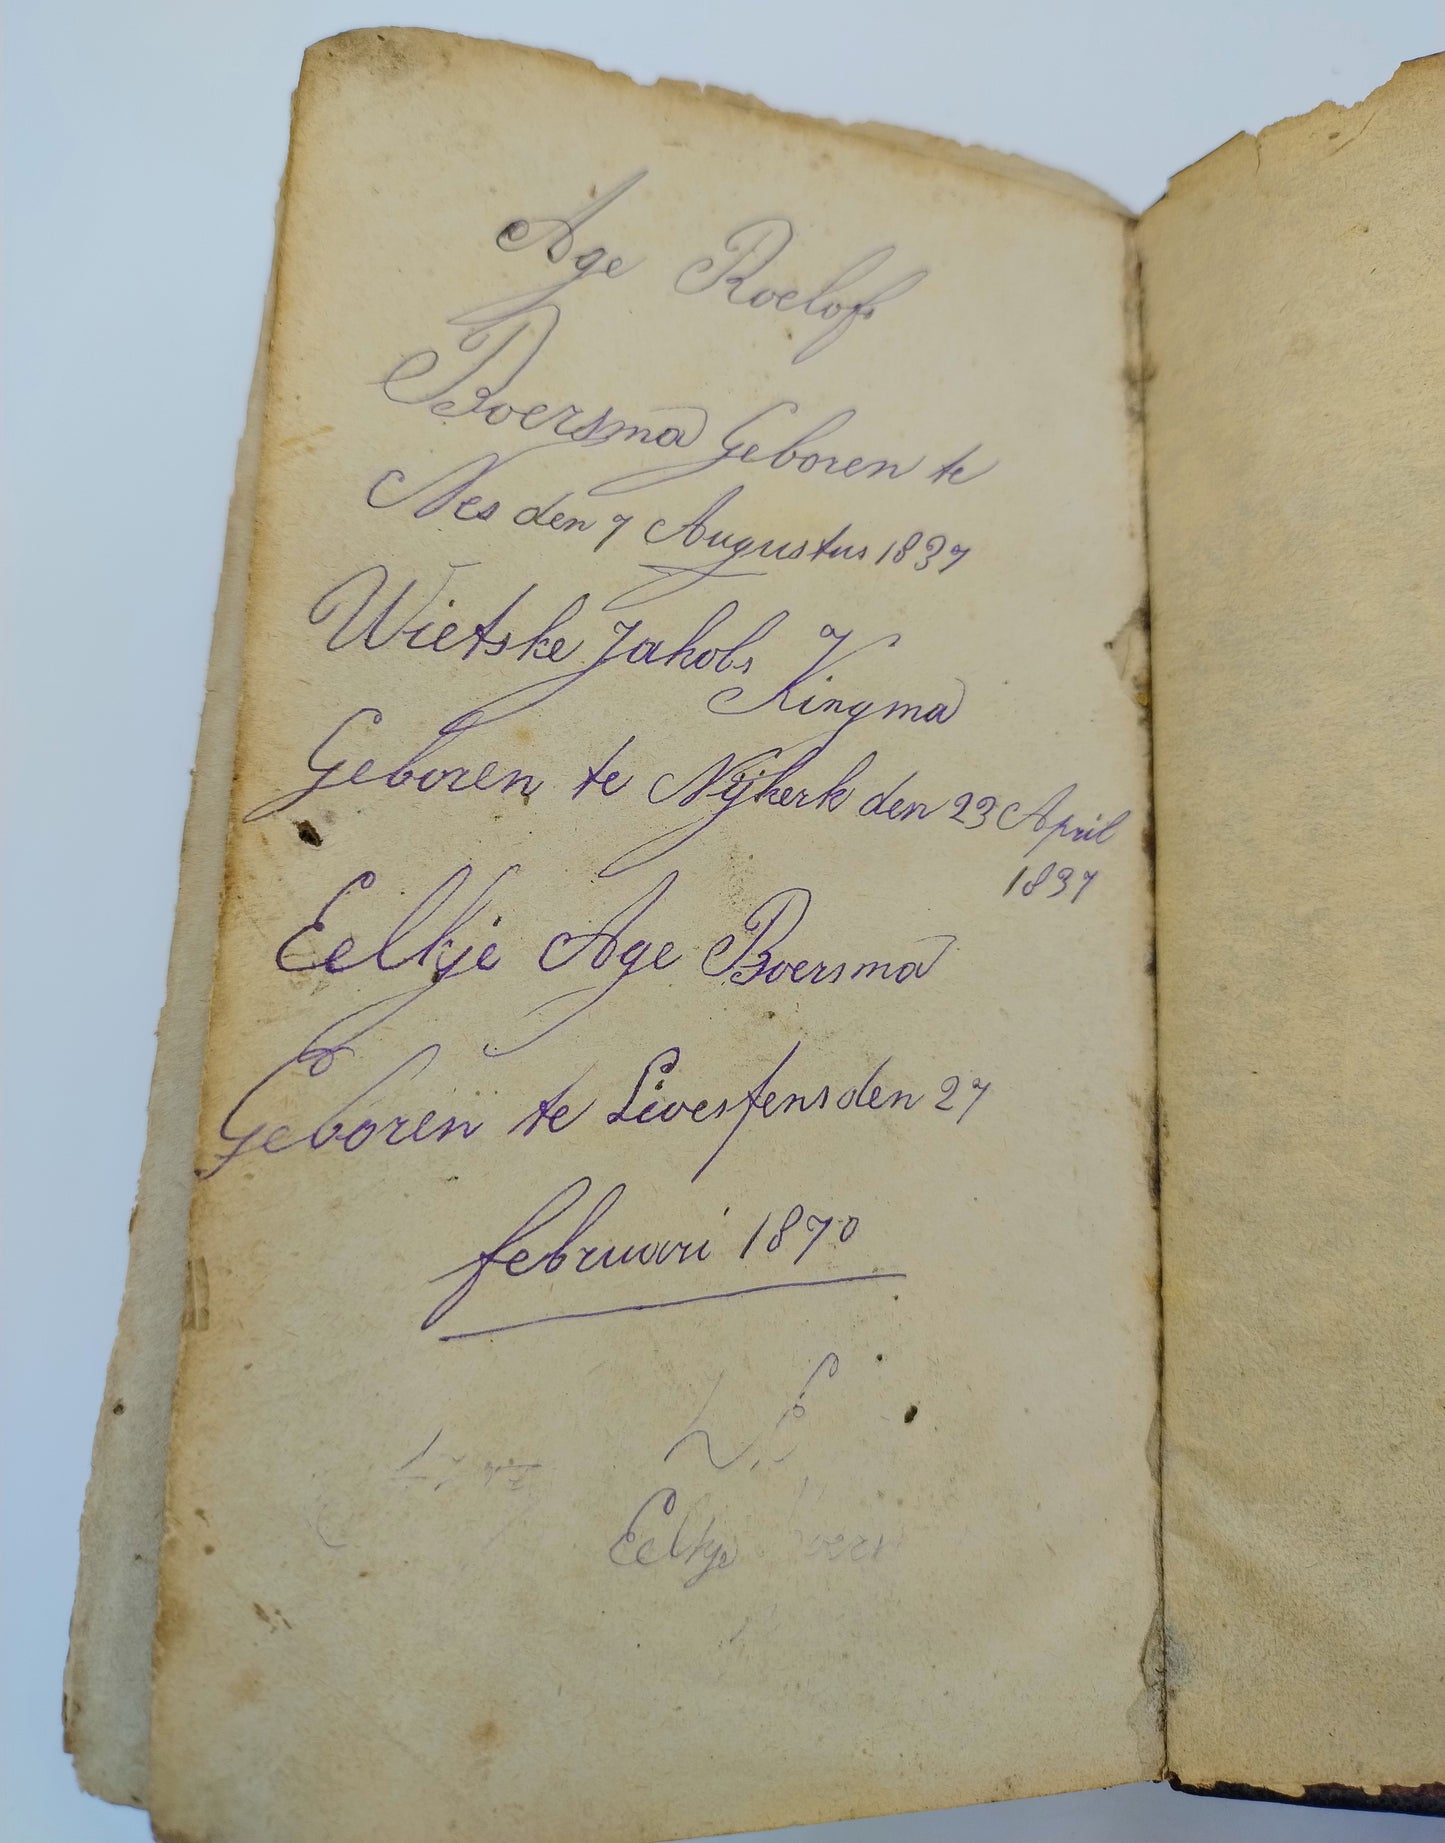 Age Roelofs
Boersma Geboren te
Nes den 7 Augustus 1837
Wietske Jakobs
Kingma
Geboren te Nijkerk den 23 April
1837
Eelkje Age Boersma
Geboren te Livestens den 27
februari 1870
Eelkje